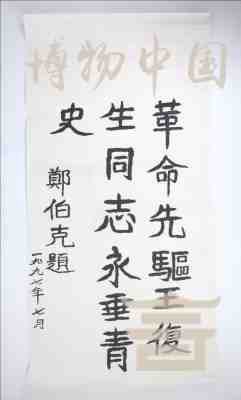 博物中国
革命先驅王復
生同志永垂青
史
鄭伯克題
一九九七年七月